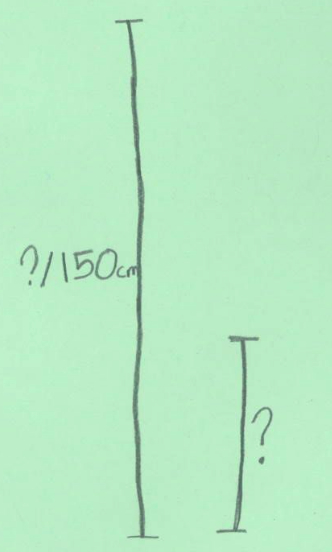 ?/150cm
?